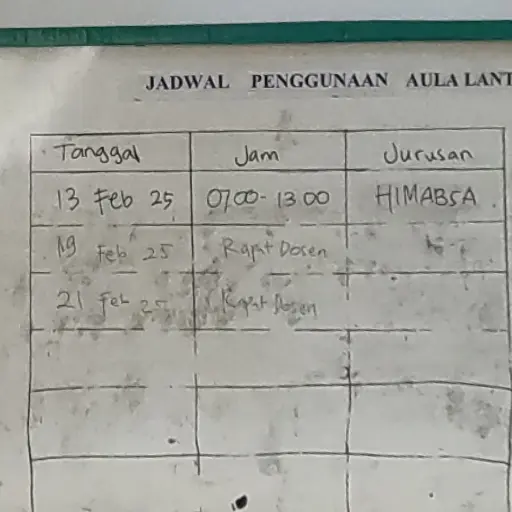 JADWAL PENGGUNAAN AULA LANT
Tanggal Jam Jurusan
13 Feb 25 07.00 - 13.00 HIMABSA
19 Feb 25 Rapat Dosen
21 Feb 25 Rapat Dosen